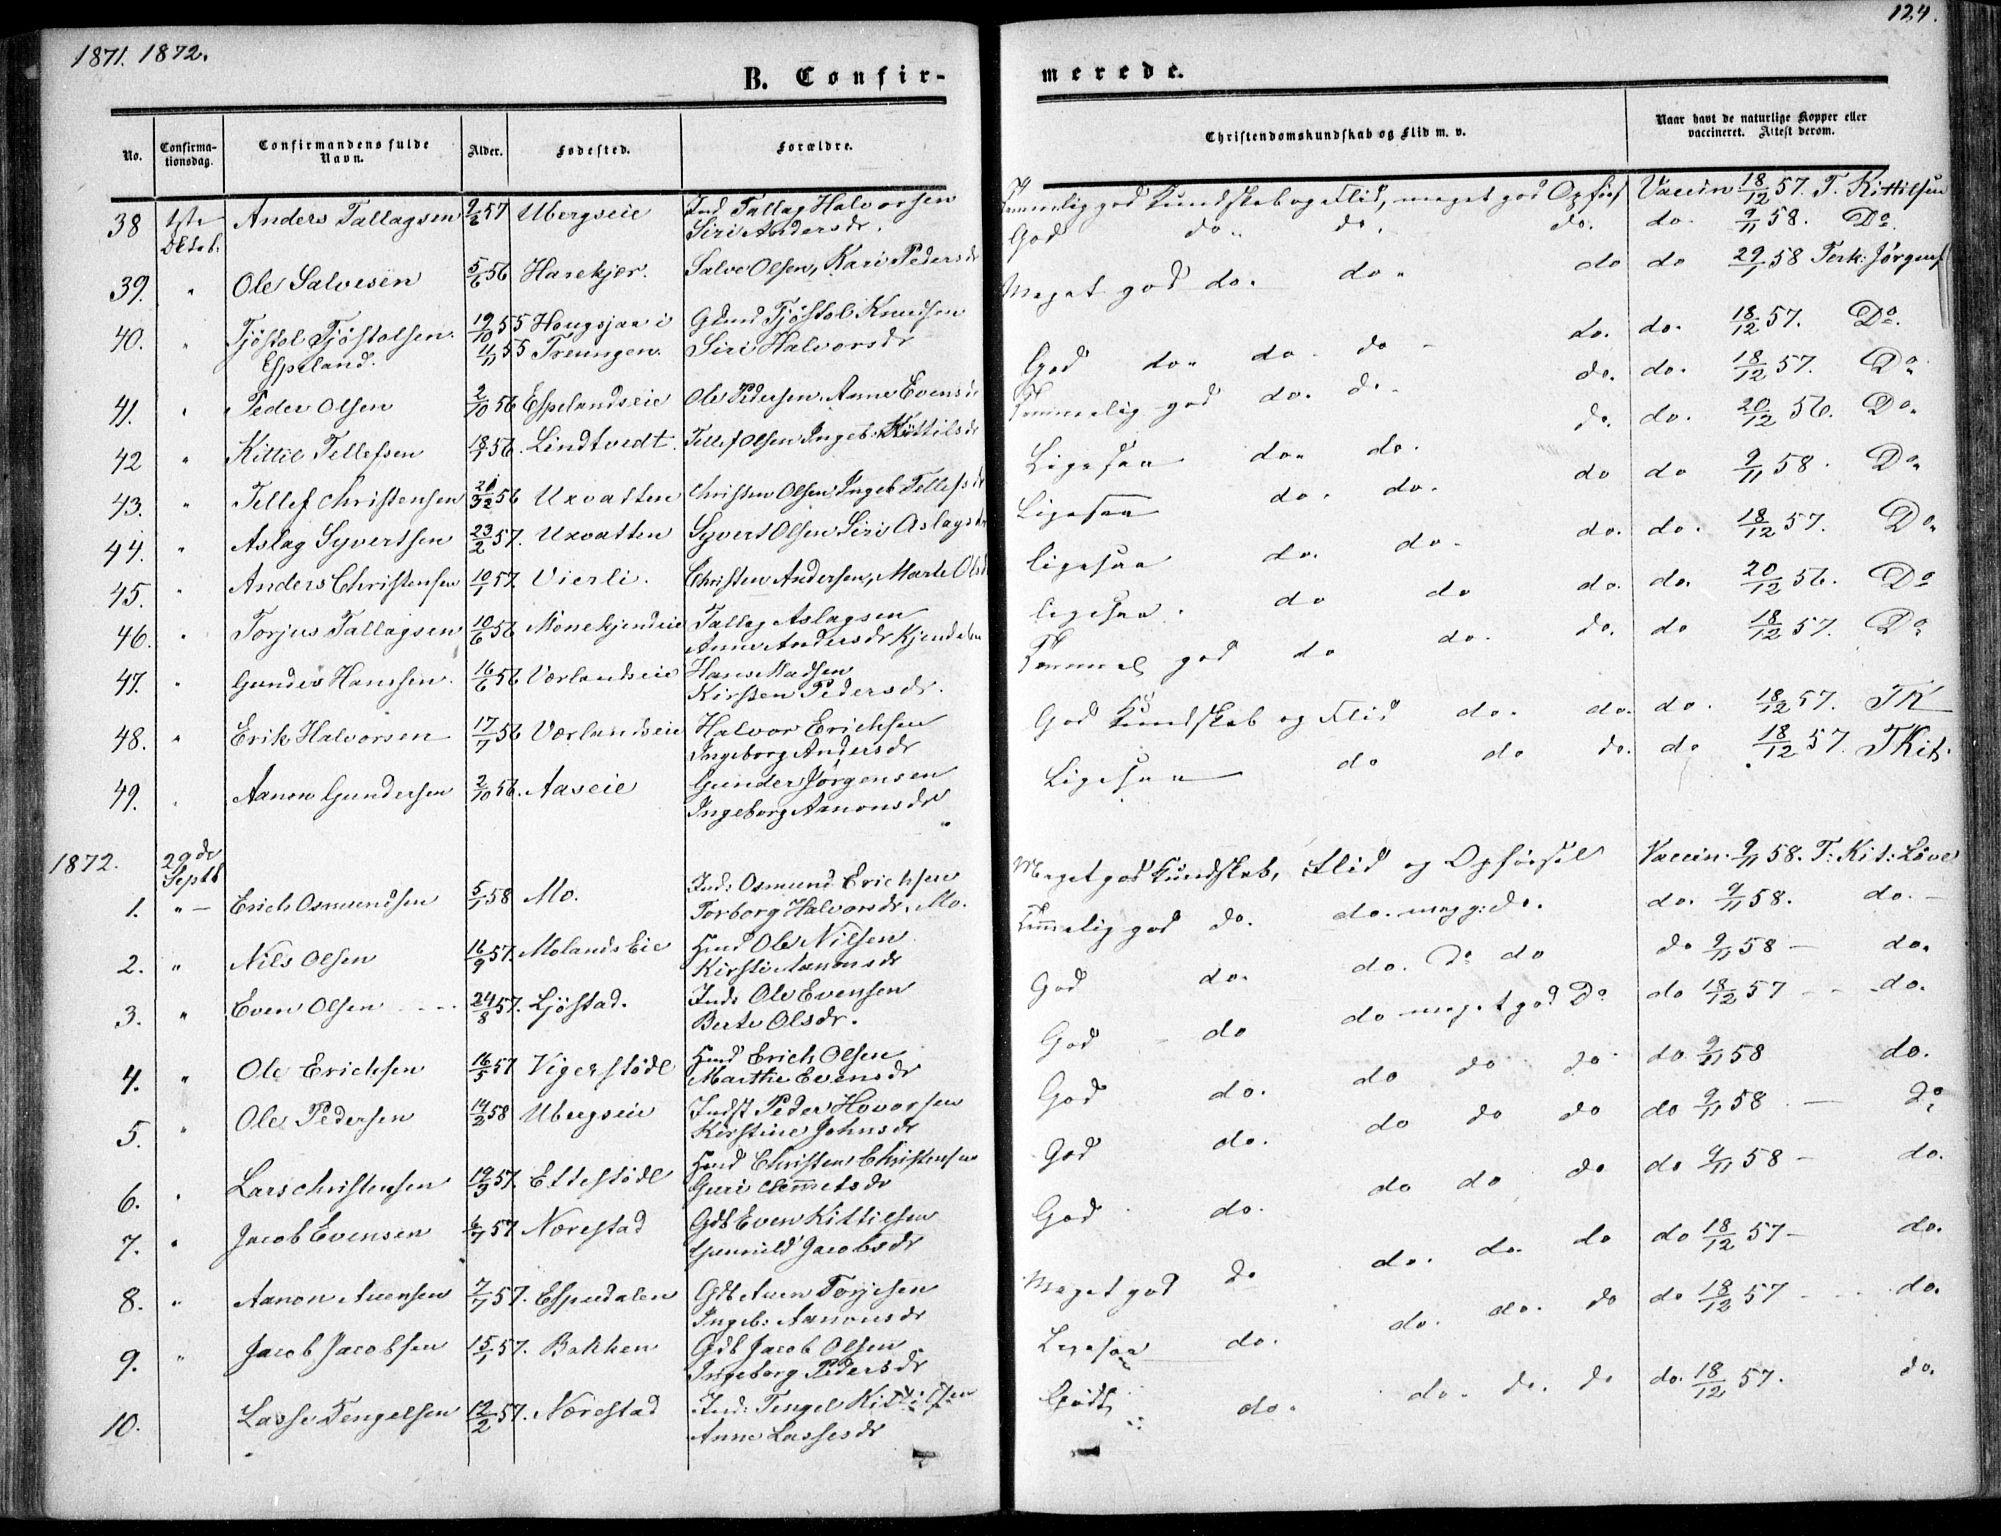 1871. 1872.
B. Confir-
No. Confirma-tionsdag. Confirmandens fulde Navn. Alder. Fødested. Forældre.
38 1ste Oktob. Anders Tallagsen 9/2 57 Ubergseie Ind Tallag Halvorsen
Siri Andersdr.
39. " Ole Salvesen 5/6 56 Harekjær. Salve Olsen, Kari Pedersdr
40. " Tjøstol Tjøstolsen 19/10 55 Hougsjaa i Gbmd Tjøstol Knudsen
Espeland. 11/11 55 Treungen. Siri Halvorsdr
41. " Peder Olsen 2/10 56 Espelandseie Ole Pedersen, Anne Evensdr
42 " Kittil Tellefsen 18/1 56. Lindtvedt. Tellef Olsen Ingeb. Kittilsdr
43. " Tellef Christensen 56 Uxvatten Christen Olsen, Ingeb Tellefsdr
44. " Aslag Syvertsen 23/2 57. Uxvatten Syvert Olsen Siri Aslagsdr
45. " Anders Christensen 10/1 57. Vierli. Christen Andersen, Marte Olsd
46. " Torjus Tallagsen 10/6 56 Monekjendeie Tallag Aslagsen
Anne Andersdr Kjendalen
47. " Gunder Hansen. 16/6 56 Værlandseie Hans Madsen
Kirsten Pedersdr.
48. " Erik Halvorsen 17/7 56 Værlandseie Halvor Erichsen
Ingeborg Andersdr
49. " Aanon Gundersen 2/10 56. Aaseie Gunder Jørgensen
Ingeborg Aanonsdr
1872. 29de Septb
1. " Erich Osmundsen 5/1 58 Mo. Ind: Osmund Erichsen
Torborg Halvorsdr, Mo.
2. " Nils Olsen 16/9 57. Molands Eie Hmd Ole Nilsen
Kirsti Aanonsdr
3. " Even Olsen 24/8 57. Ljøstad. Inds Ole Evensen
Berte Olsdr.
4. " Ole Erichsen 16/5 57 Vigerstødl Hmd Erich Olsen
Marthe Evensdr
5. " Ole Pedersen 14/2 58 Ubergseie Indst Peder Hovorsen
Kirstine Johnsdr
6. " Lars Christensen 19/3 57. Ettestødl Hmd Christen Christensen
Guri Clemmetsdr
7. " Jacob Evensen 6/7 57 Nærestad Gdb Even Kittilsen
Gunnild Jacobsdr
8. " Aanon Auensen 7/7 57. Espedalen Gdb Auen Torjesen
Ingeb: Aanonsdr
9. " Jacob Jacobsen 15/1 57. Bakken Gdb Jacob Olsen
Ingeborg Pedersdr
10. Lasse Tengelsen 12/2 57. Nærestad Ind: Tengel Kittilsen
Anne Lassesdr
124.
merede.
Christendomskundskab og Flid m. v. Naar havt de naturlige Kopper eller vaccineret. Attest derom.
Temmelig god Kundskab og Flid, meget god Opførs Vaccin 18/12 57. T. Kittilsen
God do. do. do. do. 9/11 58. Do.
Meget god do. do. do do 29/1 58 Terk: Jørgens
God do. do. do do. do. 18/12 57. Do.
Temmelig god do. do. do. do. 18/12 57. Do.
Ligesaa do. do. do. do. 20/12 56. Do.
Ligesaa do. do. do do 9/11 58. Do.
ligesaa do. do. do. do. 18/12 57. Do.
ligesaa. do do do. do. 20/12 56. Do
Temmel god do do. do. do 18/12 57. Do
God Kundskab og Flid do. do. do. 18/12 57. TK
Ligesaa do do do. do 18/12 57. TKit.
Meget god Kundskab, Flid og Opførsel Vaccin. 9/11 58. T: Kit: Löve
Temmelig god do. do. meg g: do. do. 9/11 58. do.
God do. do. Do do do 9/11 58 do.
God do do meget god Do do 18/12 57 do.
God do. do do do do 9/11 58 do.
God do. do do do do 9/11 58. Do
God do. do do do do 9/11 58 do.
Meget god do do. do do do 18/12 57 do.
Ligesaa do. do. do. do do 18/12 57 do.
Godt do. do. do. do do. 18/12 57. do.